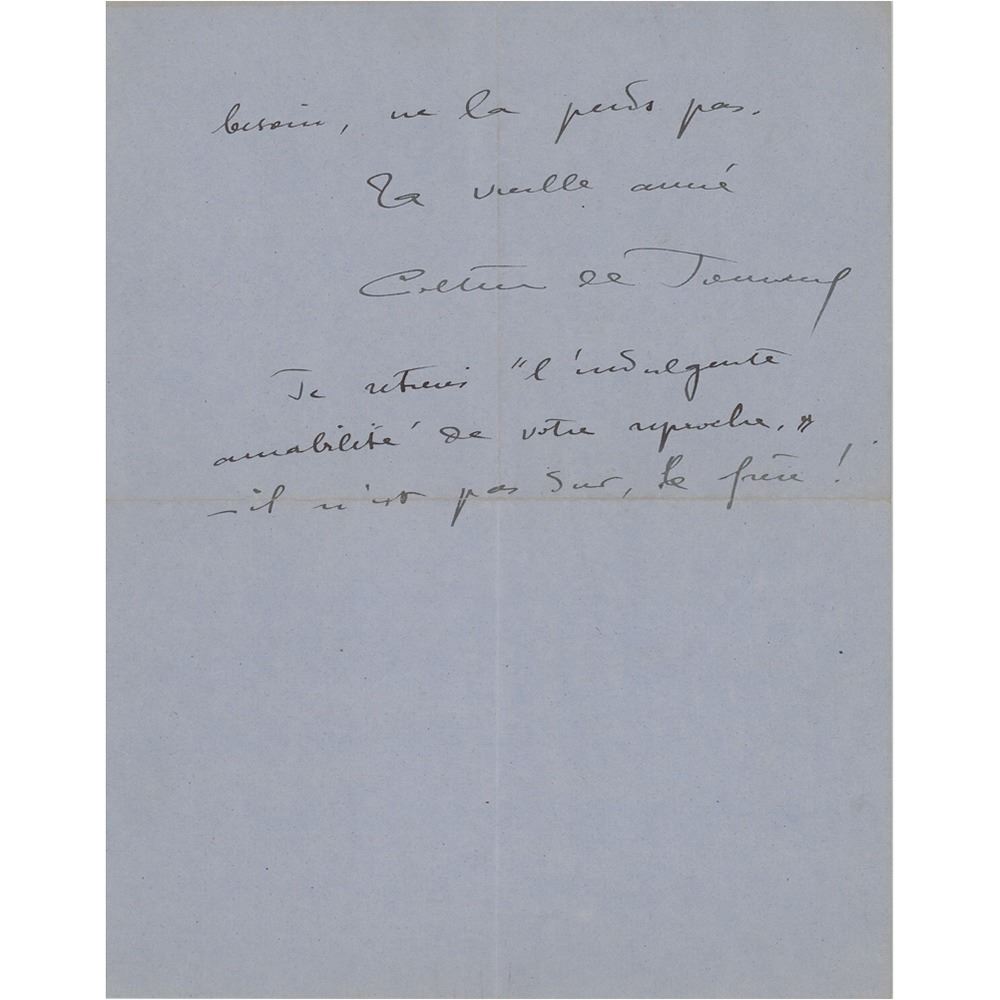 besoin, ne la perds pas.
Ta vieille amie
Colette de Jouvenel
Je retiens "l'indulgente
amabilité de votre reproche."
– il n'est pas sur, le frère !